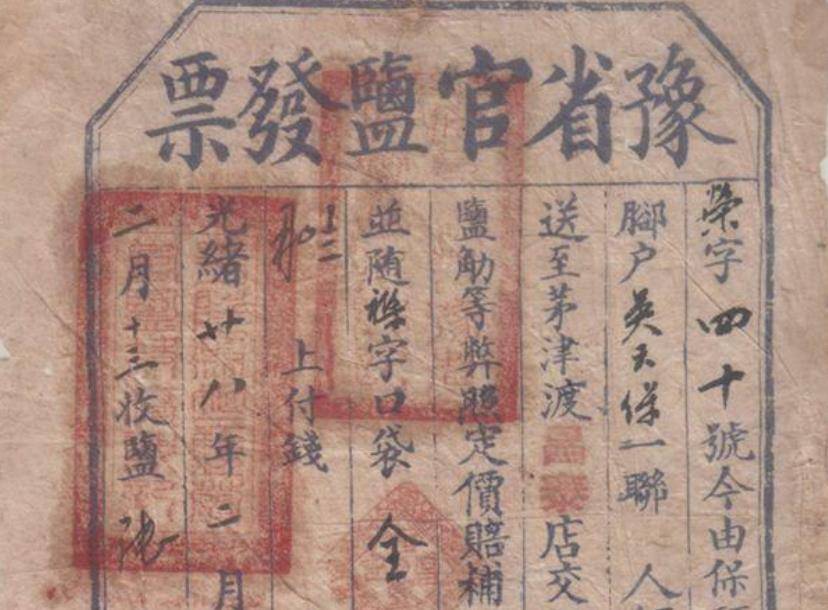 豫省官鹽發票
榮字四十號今由保
腳户吳天保一聯 人
送至茅津渡 店交
鹽觔等弊照定價賠補
並随 字口袋 全
上付錢
光緒廿八年二月
二月十三收鹽